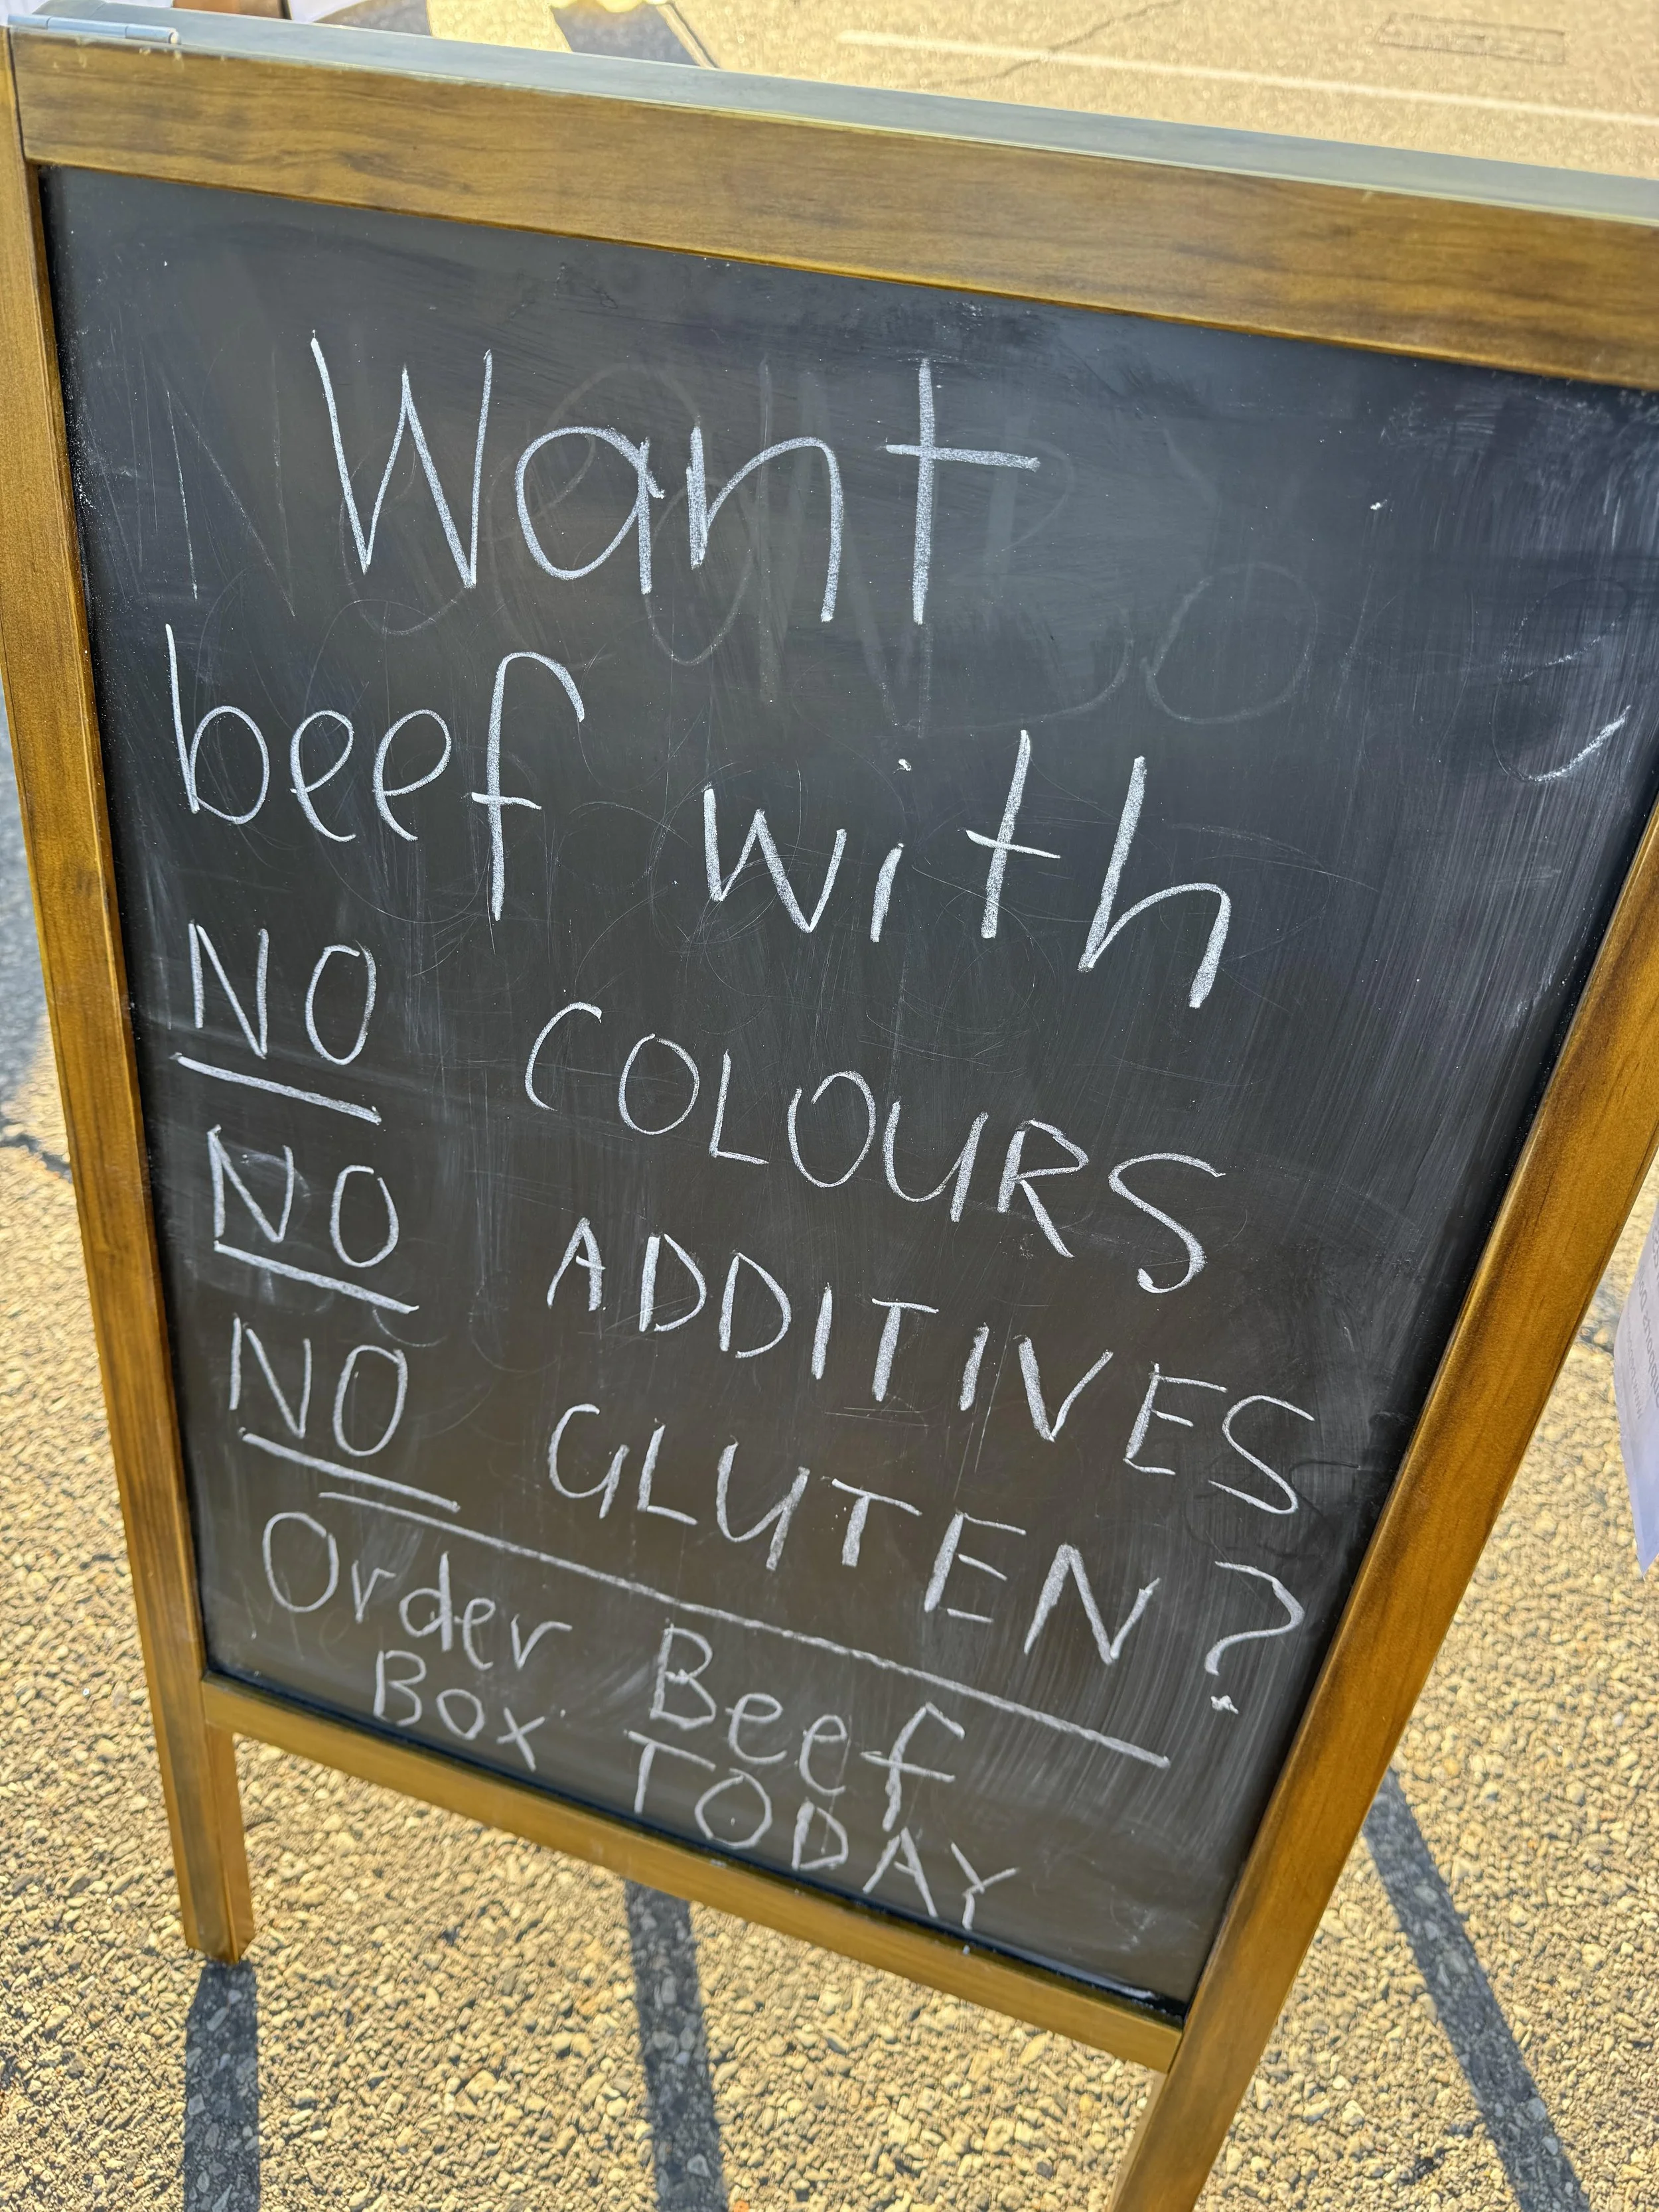 Want
beef with
NO COLOURS
NO ADDITIVES
NO GLUTEN?
Order Beef
BOX TODAY